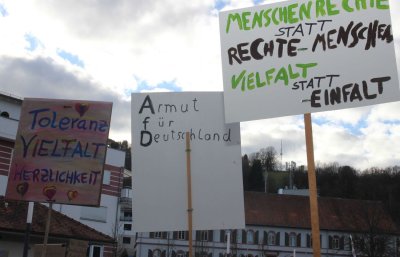 Toleranz
VIELFALT
HERZLICHKEIT
Armut
für
Deutschland
MENSCHENRECHTE
STATT
RECHTE-MENSCHEN
VIELFALT
STATT
-EINFALT